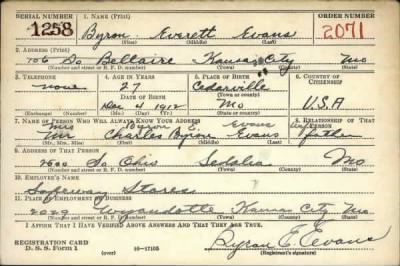 SERIAL NUMBER 1. NAME (Print) ORDER NUMBER
1258 Byron Everett Evans 2071
(First) (Middle) (Last)
2. ADDRESS (Print)
706 So Bellaire Kansas City Mo
(Number and street or R. F. D. number) (Town) (County) (State)
3. TELEPHONE 4. AGE IN YEARS 5. PLACE OF BIRTH 6. COUNTRY OF CITIZENSHIP
none 27 Cedarville
DATE OF BIRTH (Town or county)
Dec 4 1912 Mo U.S.A
(Exchange) (No.) (Mo.) (Day) (Yr.) (State or country)
7. NAME OF PERSON WHO WILL ALWAYS KNOW YOUR ADDRESS 8. RELATIONSHIP OF THAT PERSON
Mrs Byron E. Evans wife
Mr Charles Byron Evans father
(Mr., Mrs., Miss) (First) (Middle) (Last)
9. ADDRESS OF THAT PERSON
2600 So Ohio Sedalia Mo
(Number and street or R. F. D. number) (Town) (County) (State)
10. EMPLOYER'S NAME
Safeway Stores
11. PLACE OF EMPLOYMENT OR BUSINESS
2029 Wyandotte Kansas City Mo
(Number and street or R. F. D. number) (Town) (County) (State)
I AFFIRM THAT I HAVE VERIFIED ABOVE ANSWERS AND THAT THEY ARE TRUE.
REGISTRATION CARD
D. S. S. Form 1 (over) 16-17105 Byron E. Evans
(Registrant's signature)